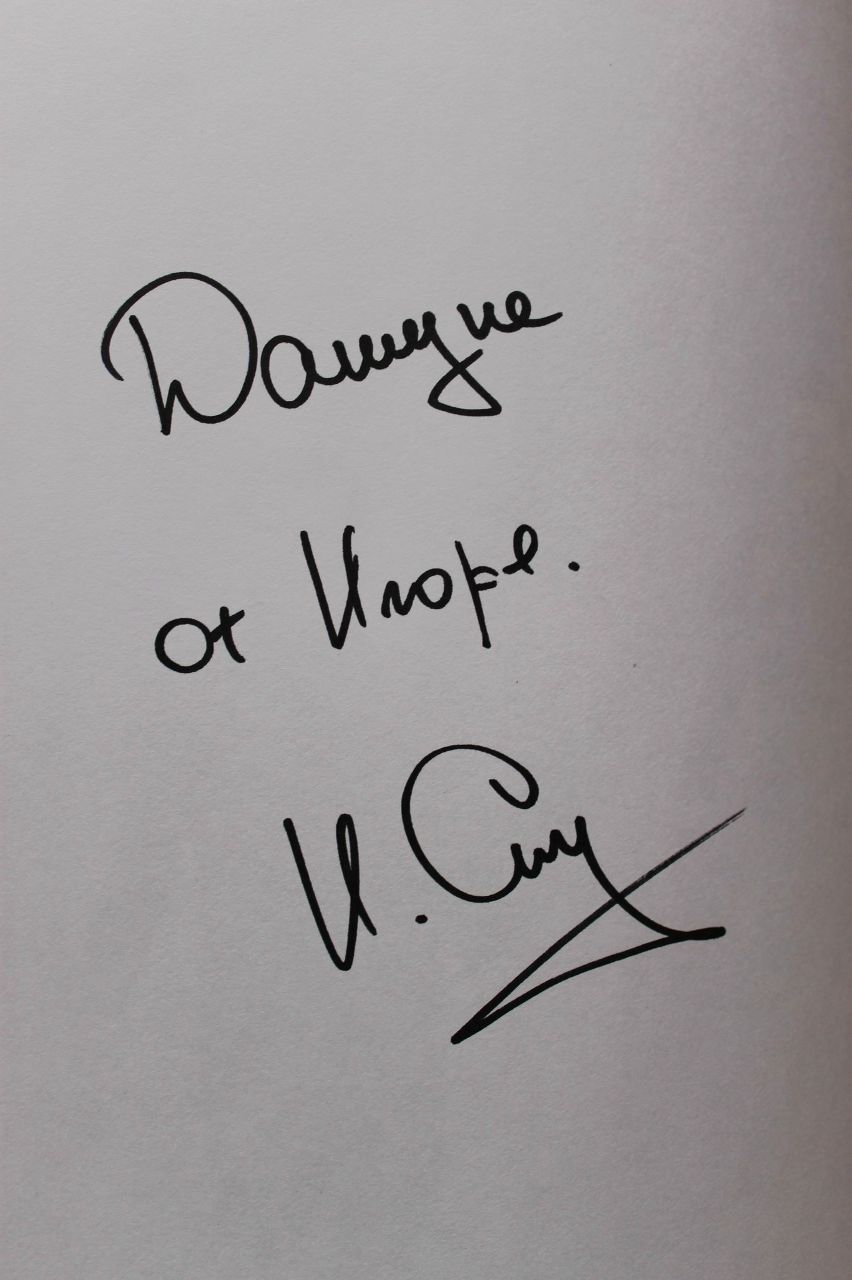 Дашуне
от Игоря.
И.